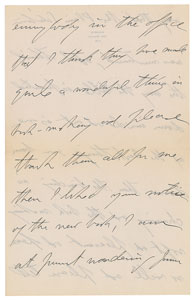 everybody in the office
that I think they have made
quite a wonderful thing in
book-making and please
thank them all for me,
then I liked your notice
of the new book, I am
at present wondering